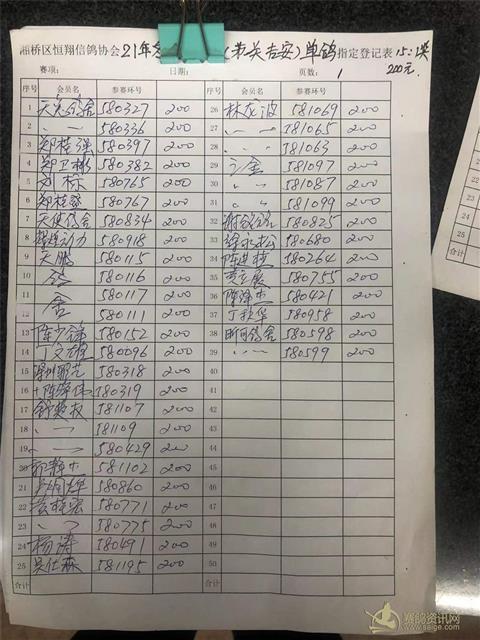 湘桥区恒翔信鸽协会21年 (韶关吉安)单鸽指定登记表 15:奖
200元
赛项: 日期: 页数: 1
序号 会员名 参赛环号 序号 会员名 参赛环号
1 580327 200 26 林友波 581069 200
2 〃 580336 200 27 〃 〃 581065 200
3 郑桂强 580397 200 28 〃 581063 200
4 郑卫彬 580382 200 29 581097 200
5 刘栋 580765 200 30 〃 〃 581087 200
6 580767 200 31 〃 581099 200
7 天使鸽舍 580834 200 32 580825 200
8 580918 200 33 徐永松 580680 200
9 天鹏 580115 200 34 580264 200
10 鸽 580116 200 35 580755 200
11 舍 580117 200 36 580421 200
12 580111 200 37 580958 200
13 陈少锋 580152 200 38 昕可鸽舍 580598 200
14 580096 200 39 〃 〃 580599 200
15 580318 200 40
16 580319 200 41
17 581107 200 42
18 〃 581109 200 43
19 〃 580429 200 44
20 581102 200 45
21 580860 200 46
22 黄桂宏 580771 200 47
23 〃 580775 200 48
24 杨涛 580491 200 49
25 吴仕森 581195 200 50
合计 合计
赛鸽资讯网
www.saige.com